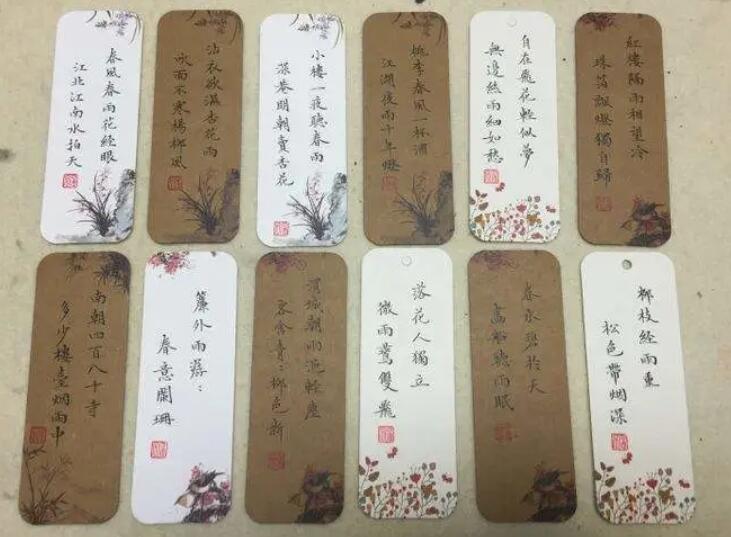 春風春雨花經眼
江北江南水拍天
沾衣欲濕杏花雨
吹面不寒楊柳風
小樓一夜聽春雨
深巷明朝賣杏花
桃李春風一杯酒
江湖夜雨十年燈
自在飛花輕似夢
無邊絲雨細如愁
紅樓隔雨相望冷
珠箔飄燈獨自歸
南朝四百八十寺
多少樓臺烟雨中
簾外雨潺:
春意闌珊
渭城朝雨浥輕塵
客舍青:柳色新
落花人獨立
微雨燕雙飛
春水碧於天
畫船聽雨眠
柳枝經雨重
松色帶烟深